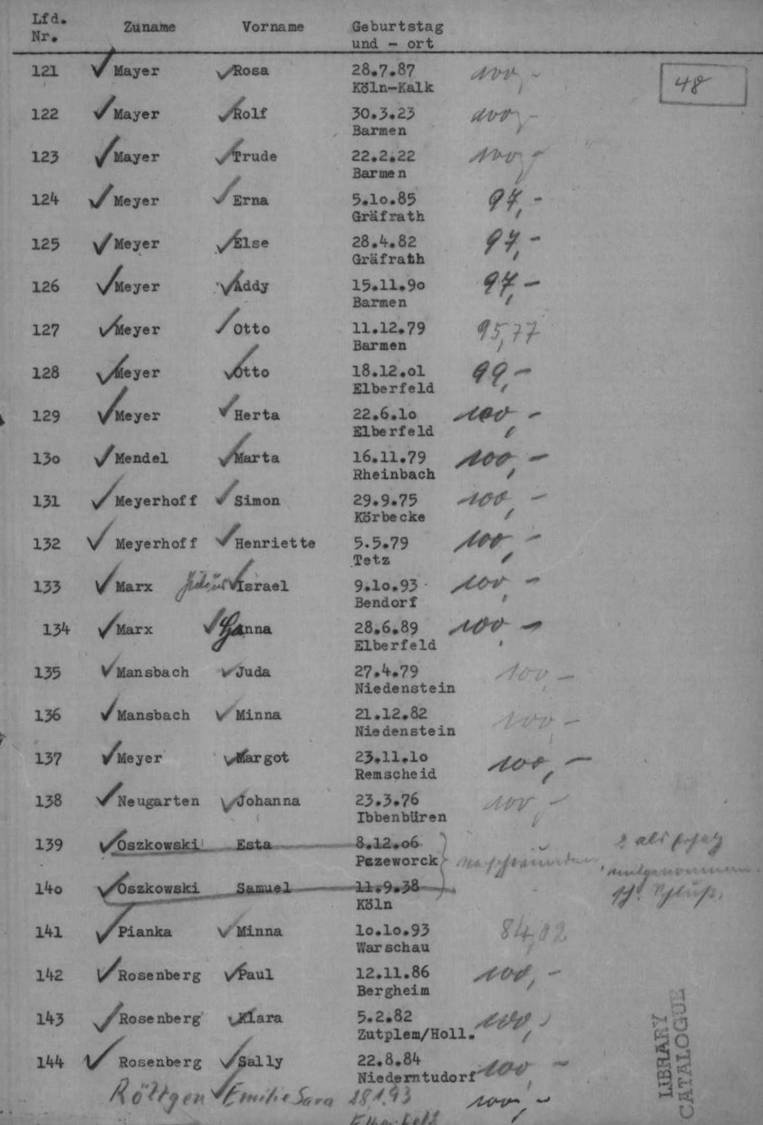 Lfd. Nr. Zuname Vorname Geburtstag und - ort
48
121 Mayer Rosa 28.7.87 100,-
Köln-Kalk
122 Mayer Rolf 30.3.23 100,-
Barmen
123 Mayer Trude 22.2.22 100,-
Barmen
124 Meyer Erna 5.10.85 97,-
Gräfrath
125 Meyer Else 28.4.82 97,-
Gräfrath
126 Meyer Addy 15.11.9o 97,-
Barmen
127 Meyer Otto 11.12.79 95,77
Barmen
128 Meyer Otto 18.12.o1 99,-
Elberfeld
129 Meyer Herta 22.6.1o 100,-
Elberfeld
13o Mendel Marta 16.11.79 100,-
Rheinbach
131 Meyerhoff Simon 29.9.75 100,-
Körbecke
132 Meyerhoff Henriette 5.5.79 100,-
Tetz
133 Marx Israel 9.1o.93 100,-
Bendorf
134 Marx Hanna 28.6.89 100,-
Elberfeld
135 Mansbach Juda 27.4.79 100,-
Niedenstein
136 Mansbach Minna 21.12.82 100,-
Niedenstein
137 Meyer Margot 23.11.1o 100,-
Remscheid
138 Neugarten Johanna 23.3.76 100,-
Ibbenbüren
139 Oszkowski Esta 8.12.o6
Pazeworck
14o Oszkowski Samuel 11.9.38
Köln
141 Pianka Minna 1o.1o.93 84,02
Warschau
142 Rosenberg Paul 12.11.86 100,-
Bergheim
143 Rosenberg Klara 5.2.82 100,-
Zutplem/Holl.
144 Rosenberg Sally 22.8.84 100,-
Niederntudorf
Röttgen Emilie Sara 28.1.93 100,-
Elberfeld
LIBRARY
CATALOGUE